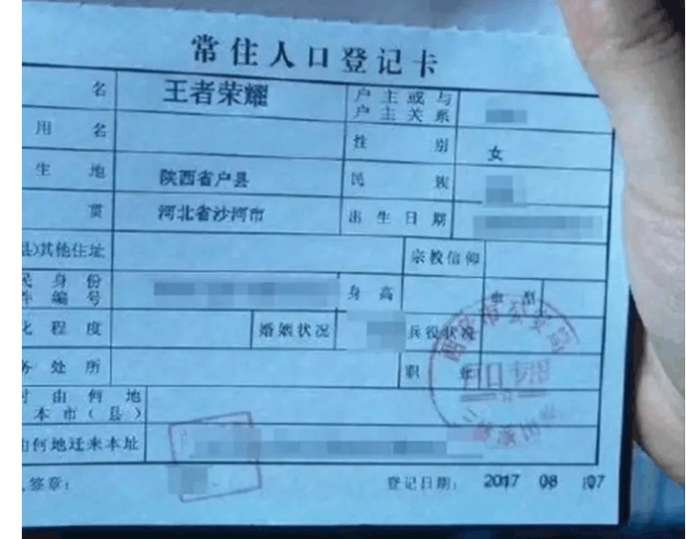 常住人口登记卡
名 王者荣耀 户主或与
户主关系
用名 性别 女
生地 陕西省户县 民族
贯 河北省沙河市 出生日期
县)其他住址 宗教信仰
民身份
件编号 身高 血型
化程度 婚姻状况 兵役状况
务处所 职业
时由何地
本市(县)
由何地迁来本址
签章: 登记日期: 2017 08 07